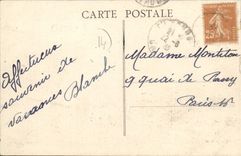 CARTE POSTALE
14
Affectueux
souvenir de
vacances
Blanche
Madame Montilon
9 quai de Passy
Paris 16
25